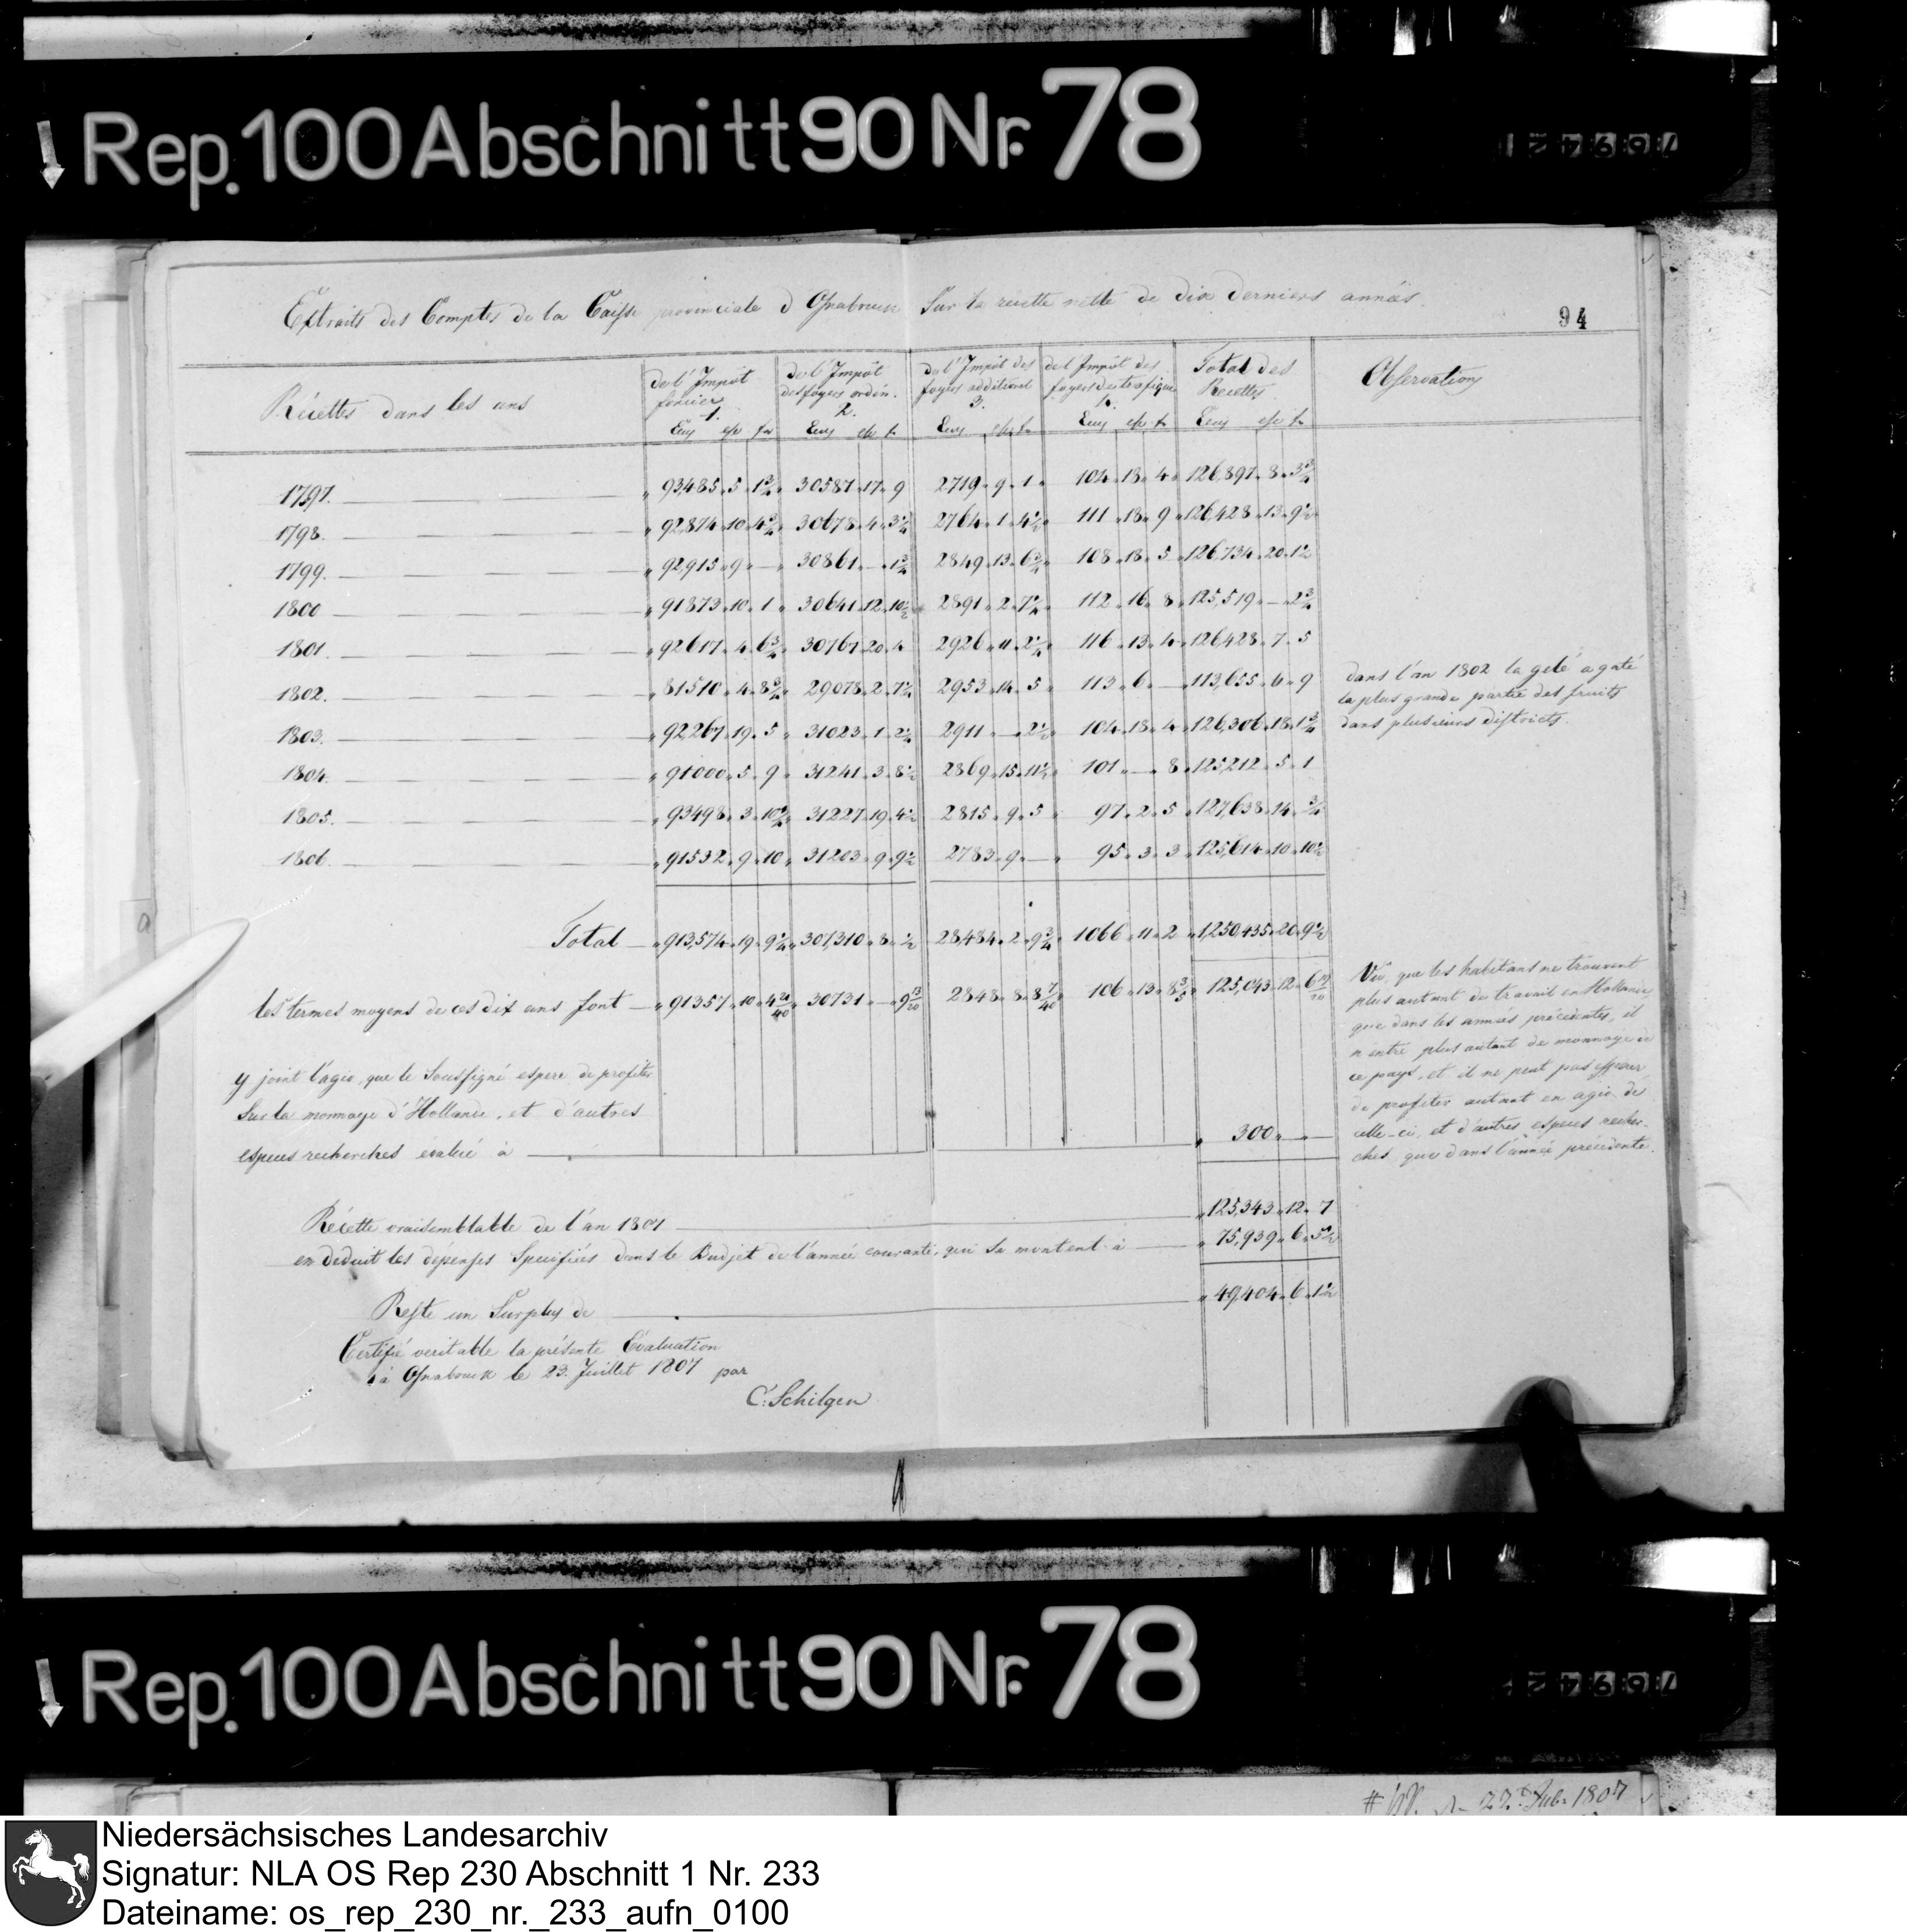 Rep. 100 Abschnitt 90 Nr. 78
94
Extraits des Comptes de la Caisse provinciale d'Osnabruck Sur la recette nette de dix derniers années.
Récettes dans les ans
de l'Impôt foncier 1.
de l'Impôt des foyers ordin. 2.
de l'Impôt des foyers additional 3.
de l'Impôt des foyers 4.
Total des Recettes
Observations
1797. 93,485 5 1¾ 30587 17 9 2719 9 1 104 18 4 126,897 8 3¾
1798. 92,874 10 4¾ 30678 4 3¼ 2764 1 4½ 111 18 9 126,428 13 9½
1799. 92,915 9 — 30861 — 1¾ 2849 13 6¾ 108 18 5 126,734 20 1½
1800 91873 10 1 30641 12 10½ 2891 2 7¼ 112 16 8 125,519 — 2¾
1801. 92617 4 6¾ 30767 20 4 2926 11 2¼ 116 13 4 126,428 7 5
1802. 81510 4 8¾ 29078 2 7¼ 2953 14 5 113 6 — 113,655 6 9
1803. 92,267 19 5 31023 1 2¼ 2911 — 2½ 104 18 4 126,306 18 1¾
1804. 91000 5 9 31241 3 8½ 2869 15 11½ 101 — 8 125,212 5 1
1805. 93498 3 10¾ 31227 19 4½ 2815 9 5 97 2 5 127,638 14 ¾
1806. 91532 9 10 31203 9 9½ 2783 9 — 95 3 3 125,614 10 10½
dans l'an 1802 la gelé a gaté
la plus grande partie des fruits
dans plusieurs districts.
Total 913,574 19 9¼ 307,310 8 ½ 28,484 2 9¾ 1066 11 2 1,250,435 20 9½
les termes moyens de ces dix ans font 91357 10 30731 — 9 13/20 2848 8 8 7/40 106 13 8 3/5 125,043 12 6 19/20
Vu, que les habitans ne trouvent
plus autant de travail en Hollande,
que dans les années précédentes, il
n'entre plus autant de monnaye de
ce pays, et il ne peut pas esperer
de profiter autant en agio de
celle-ci, et d'autres especes recher-
chés, que dans l'année précédente.
y joint l'agio, que le Soussigné espere de profiter
Sur la monnaye d'Hollande, et d'autres
especes recherchés évalué à 300 — —
Récette vraisemblable de l'an 1807 125,343 12 7
en deduit les depenses Specifiées dans le Budjet de l'année courante, qui se montent à 75,939 6 5½
Reste un Surplus de 49,404 6 1½
Certifié veritable la présente Evaluation
à Osnabruck le 23. Juillet 1807 par
C. Schilgen
Rep. 100 Abschnitt 90 Nr. 78
1807
Niedersächsisches Landesarchiv
Signatur: NLA OS Rep 230 Abschnitt 1 Nr. 233
Dateiname: os_rep_230_nr._233_aufn_0100